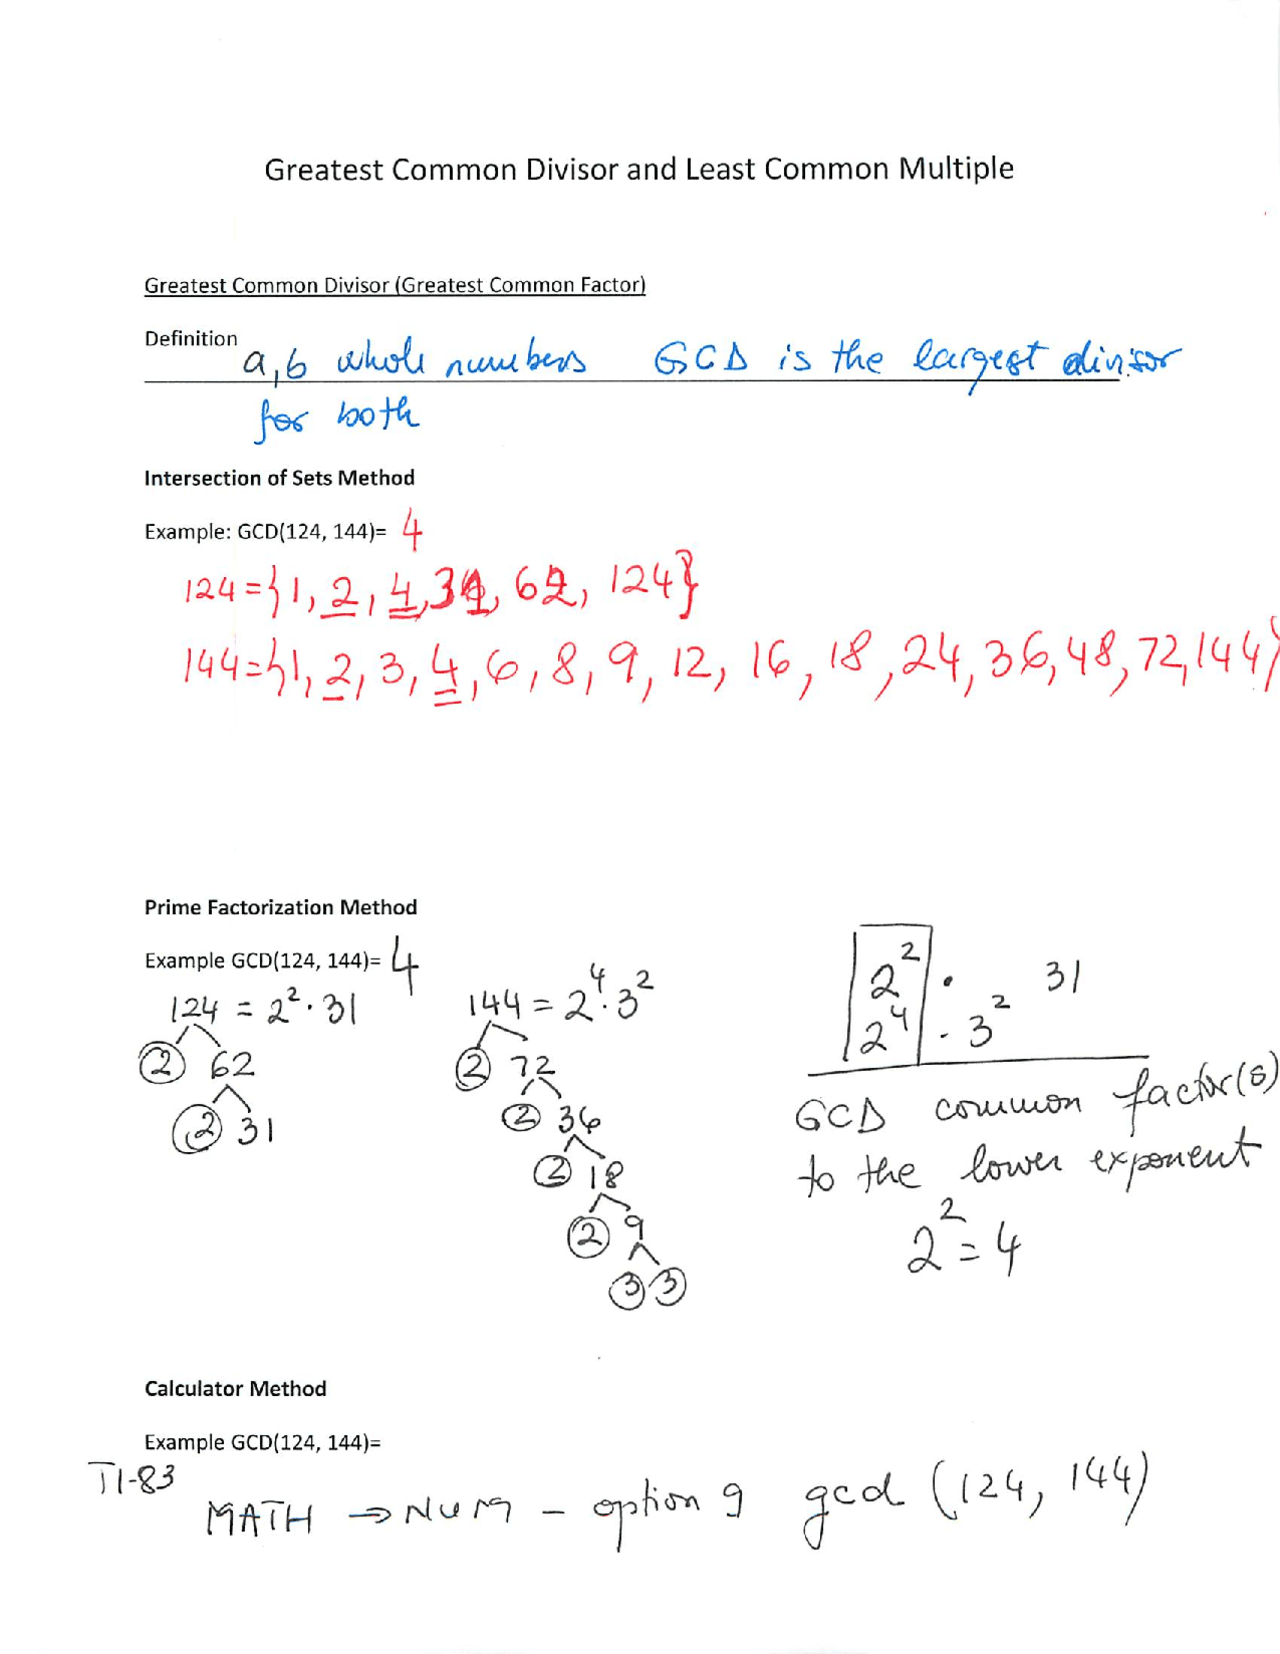 Greatest Common Divisor and Least Common Multiple
Greatest Common Divisor (Greatest Common Factor)
Definition a,b whole numbers GCD is the largest divisor
for both
Intersection of Sets Method
Example: GCD(124, 144)= 4
124={1, 2, 4, 31, 62, 124}
144={1, 2, 3, 4, 6, 8, 9, 12, 16, 18, 24, 36, 48, 72, 144}
Prime Factorization Method
Example GCD(124, 144)= 4
124 = 2²·31
2 62
2 31
144 = 2⁴·3²
2 72
2 36
2 18
2 9
3 3
2² · 31
2⁴ · 3²
GCD common factor(s)
to the lower exponent
2² = 4
Calculator Method
Example GCD(124, 144)=
TI-83
MATH → NUM – option 9 gcd (124, 144)